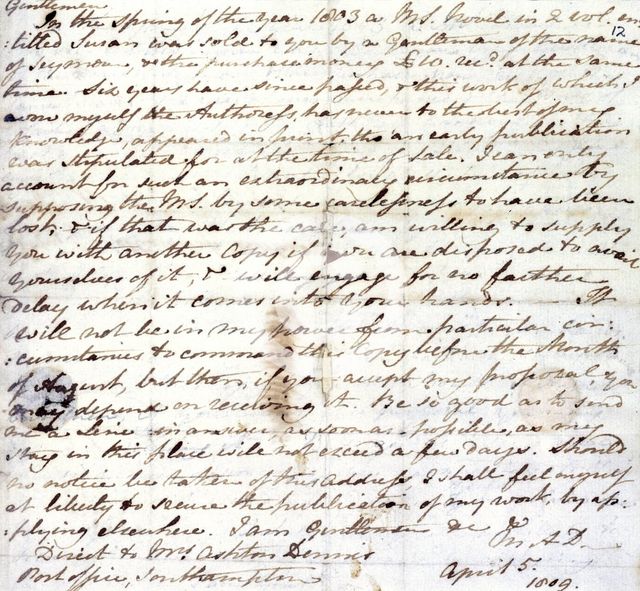 Gentlemen
In the Spring of the year 1803 a MS. Novel in 2 vol. en-
12
:titled Susan was sold to you by a Gentleman of the name
of Seymour, & the purchase money £10. recd. at the same
time. Six years have since passed, & this work of which I
avow myself the Authoress, has never to the best of my
knowledge, appeared in print, tho' an early publication
was stipulated for at the time of Sale. I can only
account for such an extraordinary circumstance by
supposing the MS. by some carelessness to have been
lost; & if that was the case, am willing to supply
You with another Copy if you are disposed to avail
yourselves of it, & will engage for no farther
delay when it comes into Your hands. — It
will not be in my power from particular cir-
:cumstances to command this Copy before the Month
of August, but then, if you accept my proposal, you
may depend on receiving it. Be so good as to send
me a Line in answer, as soon as possible, as my
stay in this place will not exceed a few days. Should
no notice be taken of this Address, I shall feel myself
at liberty to secure the publication of my work, by ap-
:plying elsewhere. I am Gentlemen &c
Direct to Mrs. Ashton Dennis
M. A. D.—
Post office, Southampton
April 5.
1809.